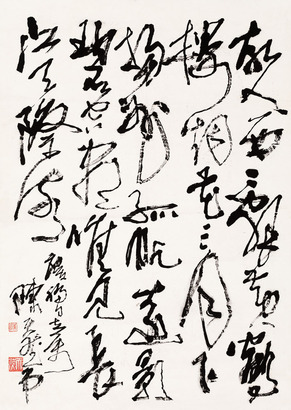 故人西辭黃鶴
樓烟花三月下
揚州孤帆遠影
碧空盡惟見長
江天際流
同志屬